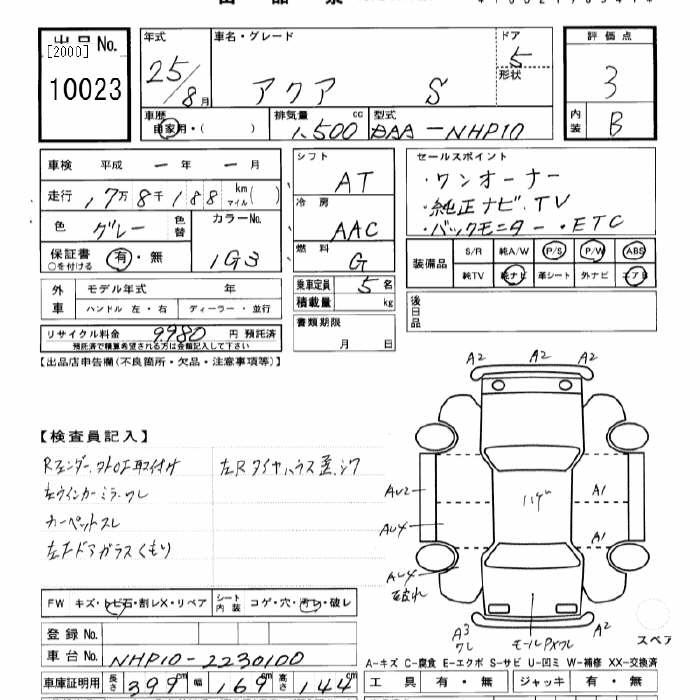 出品票
出品No. [2000] 10023
年式 25/8月
車名・グレード アクア S
ドア 5
形状
評価点 3
内装 B
車歴 自家用・( )
排気量 1,500 cc
型式 DAA-NHP10
車検 平成 ー 年 ー 月
走行 17万8千188 km マイル( )
色 グレー 色替
カラーNo. 1G3
保証書 ○を付ける 有・無
シフト AT
冷房 AAC
燃料 G
乗車定員 5名
積載量 kg
書類期限 月 日
セールスポイント
・ワンオーナー
・純正ナビ.TV
・バックモニター・ETC
装備品 S/R 純A/W P/S P/W ABS
純TV 純ナビ 革シート 外ナビ エアB
後日品
外車 モデル年式 年
ハンドル 左・右 ディーラー・並行
リサイクル料金 9980 円 預託済
預託済で積算希望される方は金額記入して下さい
【出品店申告欄(不良箇所・欠品・注意事項等)】
【検査員記入】
Rフェンダー.クトロE取付け
左Rタイヤハウス歪.シワ
左ウインカーミラーワレ
カーペットスレ
左Fドアガラスくもり
A2 A2 A2
AU2
AU4
AU4
破れ
A1
A1
A3
ワレ
モールPメワレ
A2
スペア
FW キズ・トビ石・割レX・リペア シート内装 コゲ・穴・汚レ・破レ
登録No.
車台No. NHP10-2230100
車庫証明用 長さ 399cm 幅 169cm 高さ 144cm
A-キズ C-腐食 E-エクボ S-サビ U-凹ミ W-補修 XX-交換済
工具 有・無 ジャッキ 有・無